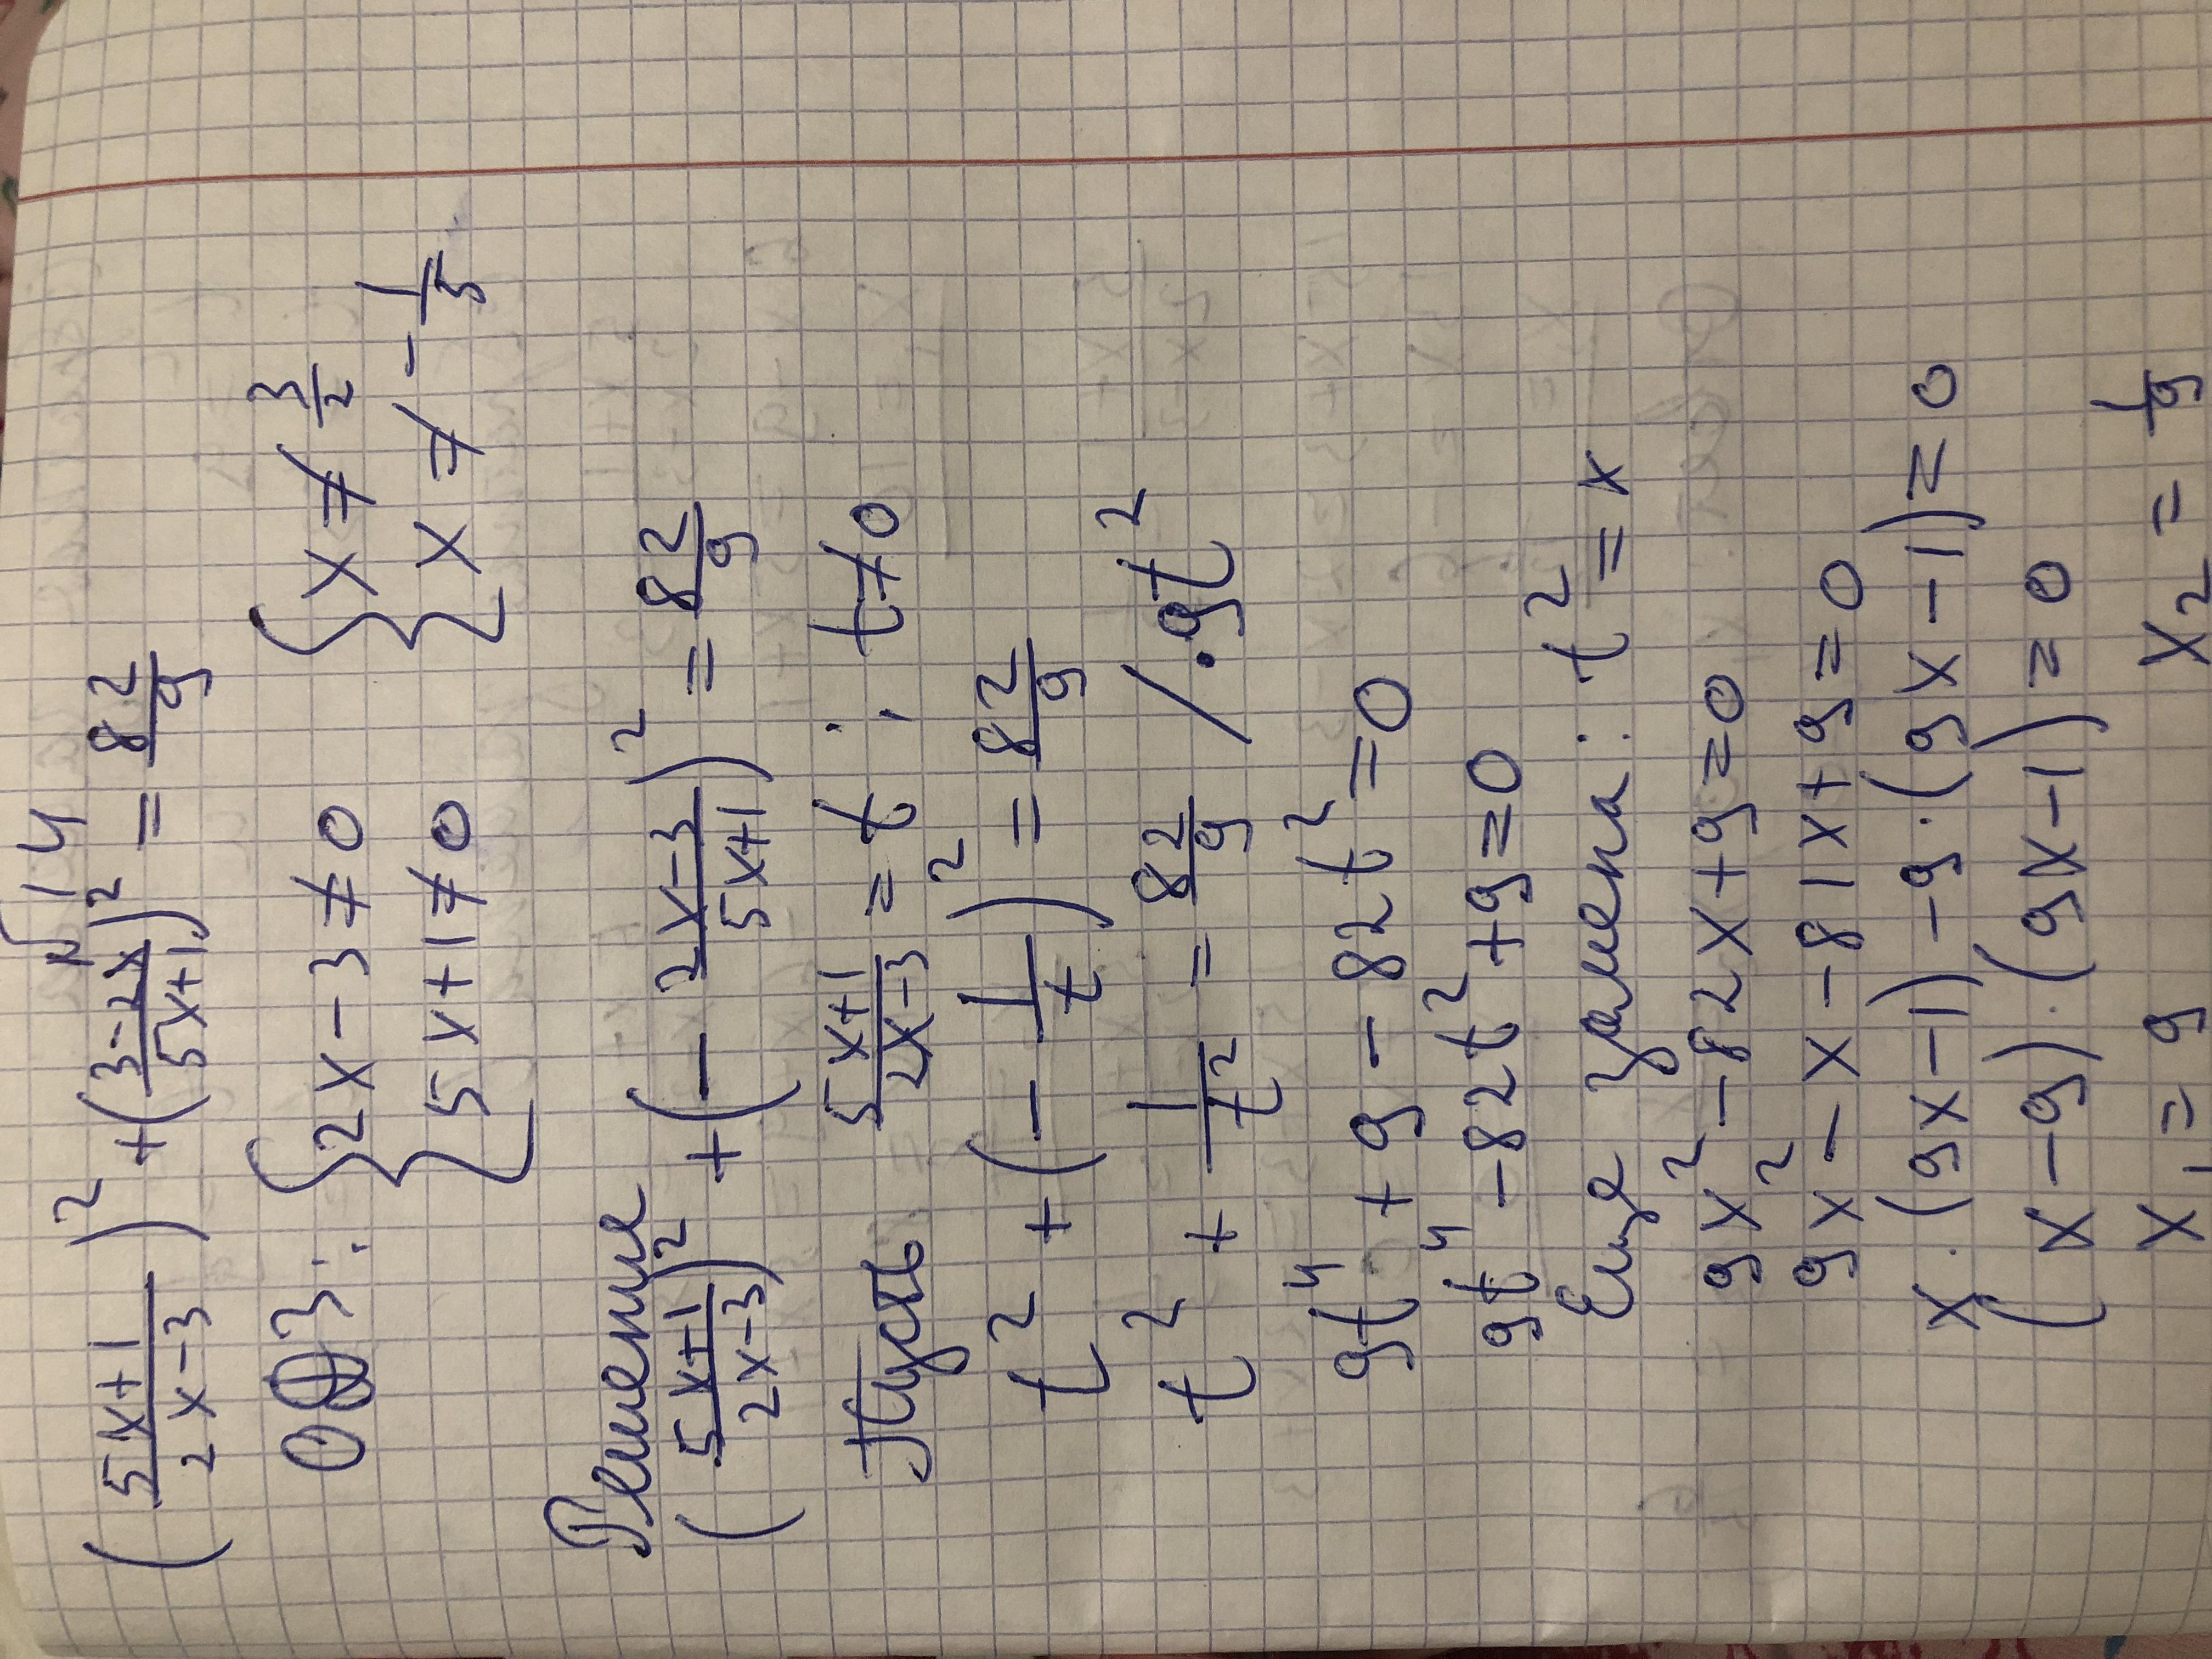 N 14
(5x+1/2x-3)² + (3-2x/5x+1)² = 82/9
ОДЗ: { 2x-3≠0 { x≠3/2
5x+1≠0 x≠-1/5
Решение
(5x+1/2x-3)² + (-2x-3/5x+1)² = 82/9
Пусть 5x+1/2x-3 = t ; t≠0
t² + (-1/t)² = 82/9
t² + 1/t² = 82/9 / ·9t²
9t⁴ + 9 - 82t² = 0
9t⁴ - 82t² + 9 = 0
Еще замена: t² = x
9x² - 82x + 9 = 0
9x² - x - 81x + 9 = 0
x·(9x-1) - 9·(9x-1) = 0
(x-9)·(9x-1) = 0
x₁ = 9 x₂ = 1/9